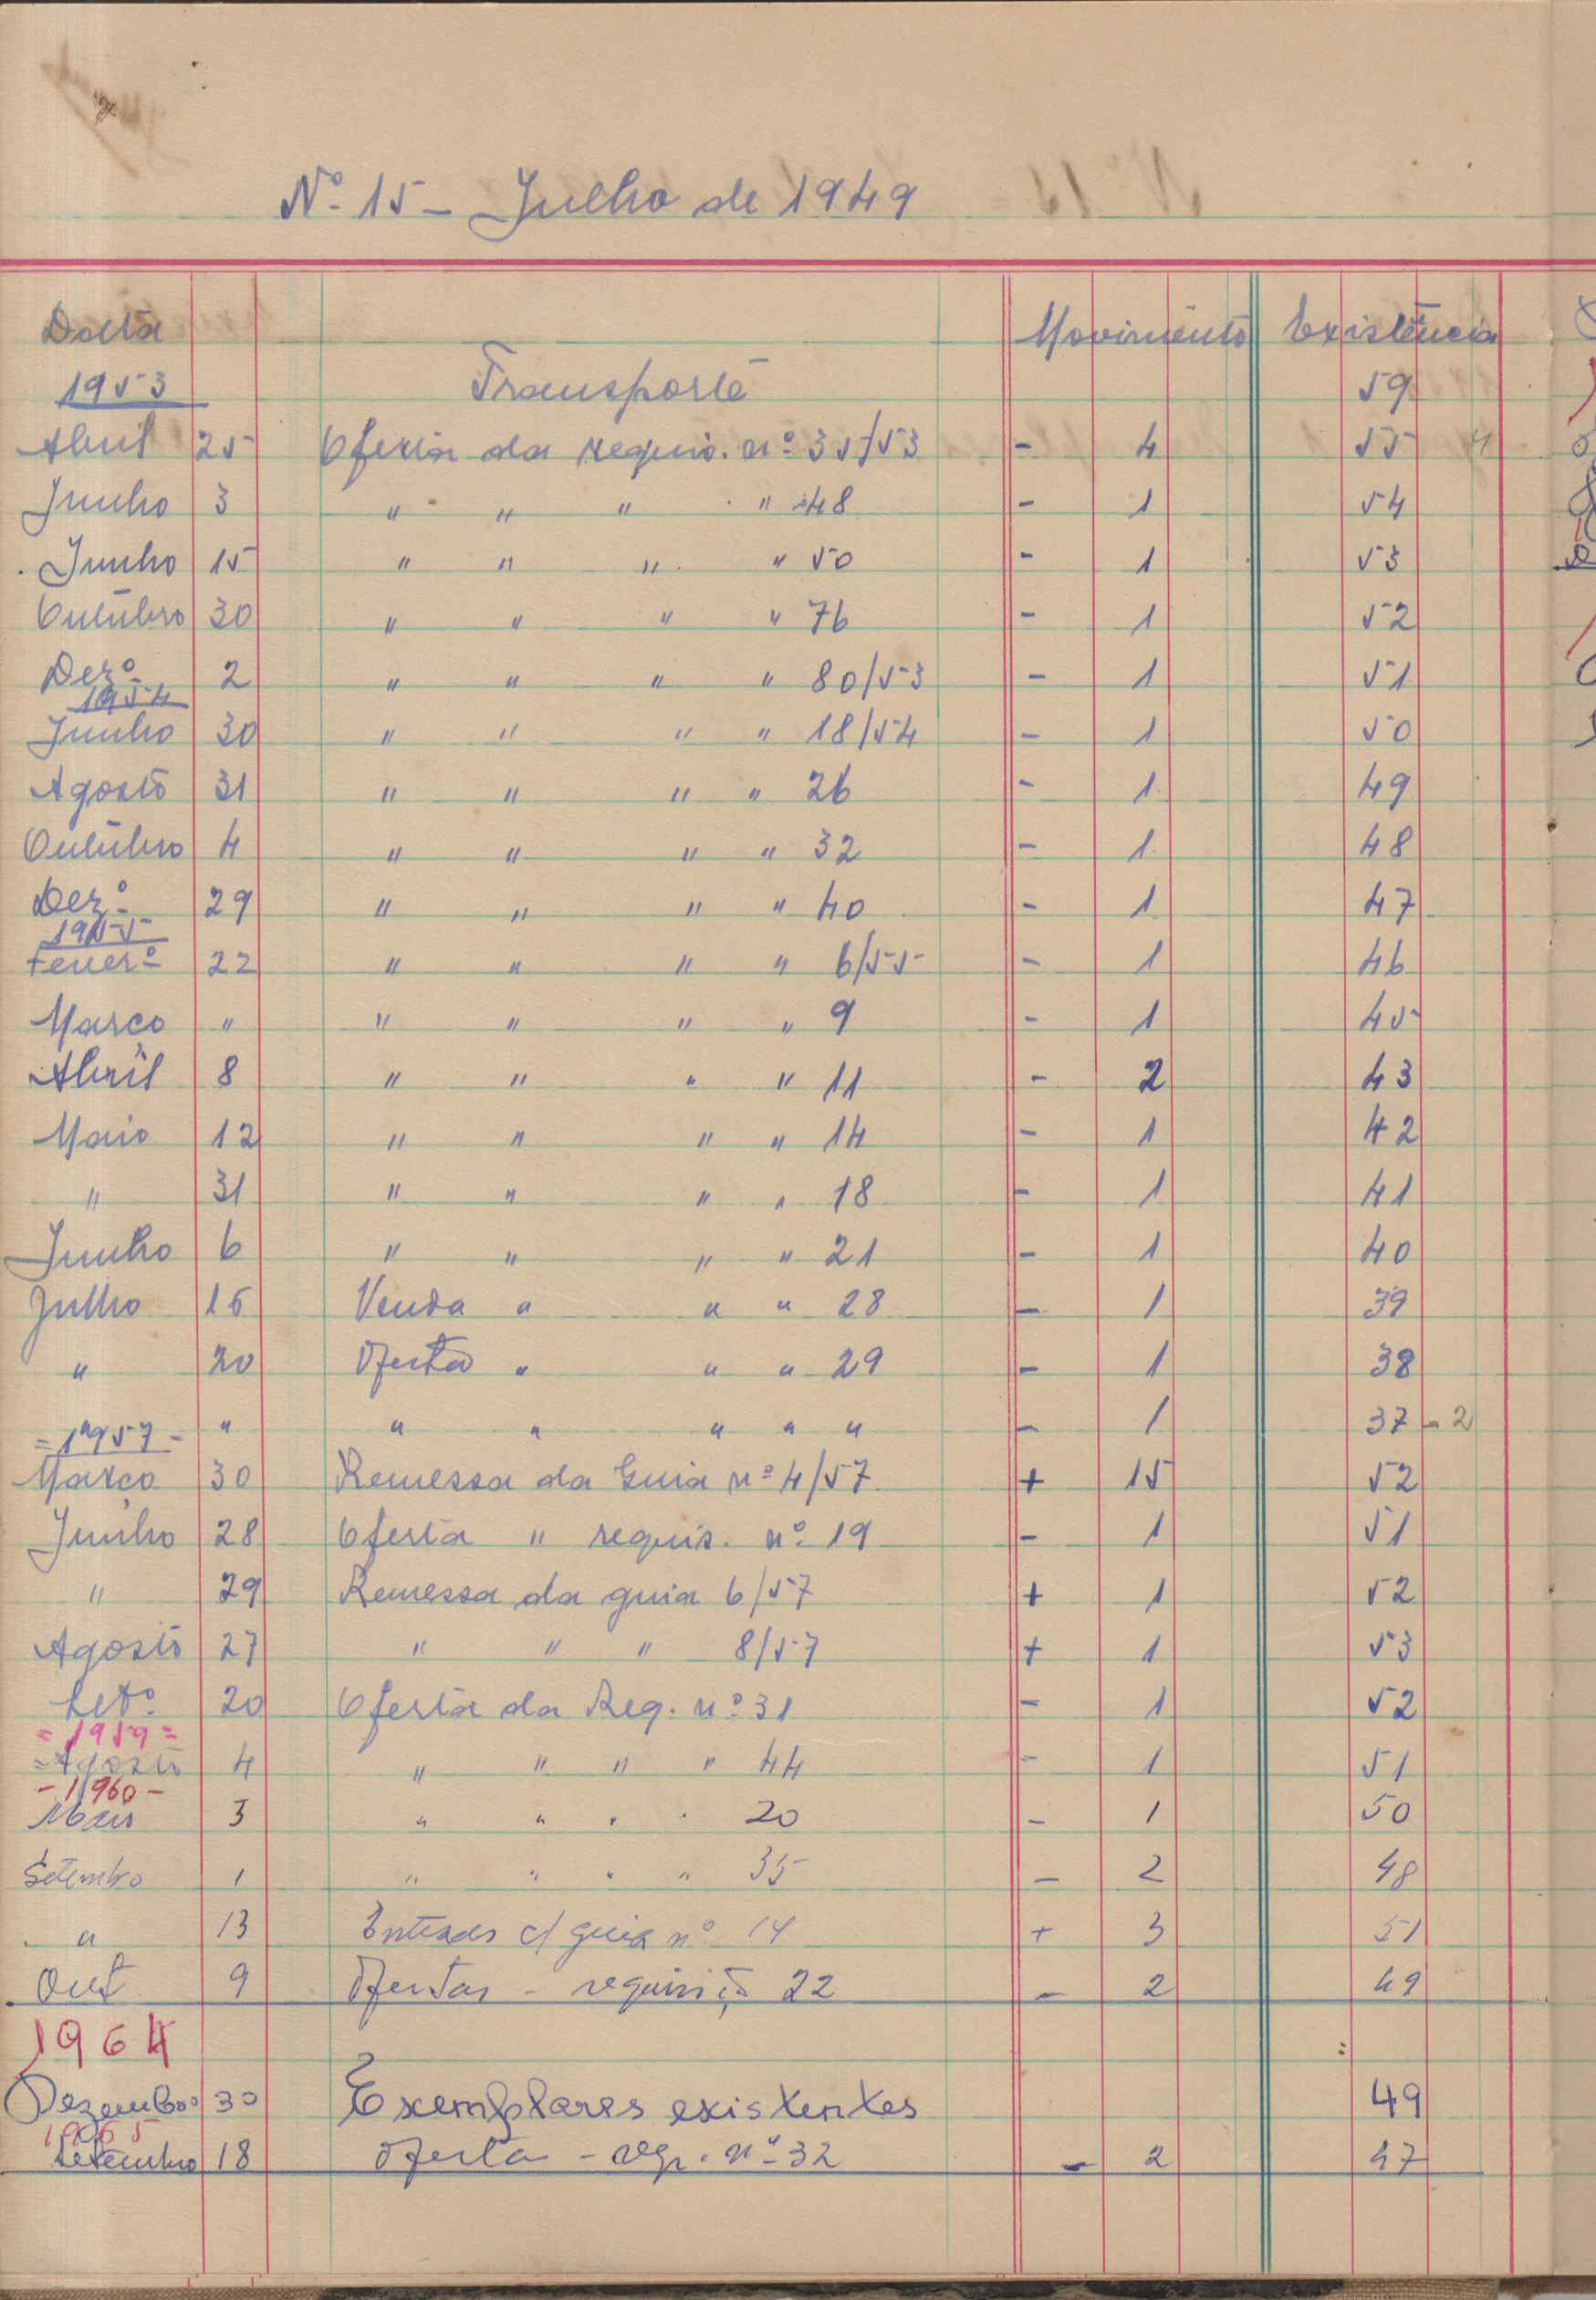 Nº 15 - Julho de 1949
Datta Movimento Existência
1953 Transporte 59
Abril 25 Oferta da requis. nº 35/53 - 4 55 4
Junho 3 " " " " 48 - 1 54
Junho 15 " " " " 50 - 1 53
Outubro 30 " " " " 76 - 1 52
Dezº 2 " " " " 80/53 - 1 51
1954
Junho 30 " " " " 18/54 - 1 50
Agosto 31 " " " " 26 - 1 49
Outubro 4 " " " " 32 - 1 48
Dezº 29 " " " " 40 - 1 47
1955
Feverº 22 " " " " 6/55 - 1 46
Março " " " " " 9 - 1 45
Abril 8 " " " " 11 - 2 43
Maio 12 " " " " 14 - 1 42
" 31 " " " " 18 - 1 41
Junho 6 " " " " 21 - 1 40
Julho 16 Venda " " " 28 - 1 39
" 20 Oferta " " " 29 - 1 38
" " " " " " " - 1 37 - 2
= 1957 -
Março 30 Remessa da Guia nº 4/57 + 15 52
Junho 28 Oferta " requis. nº 19 - 1 51
" 29 Remessa da guia 6/57 + 1 52
Agosto 27 " " " 8/57 + 1 53
Setº 20 Oferta da Req. nº 31 - 1 52
= 1959 =
= Agosto 4 " " " " 44 - 1 51
- 1960 -
Maio 3 " " " " 20 - 1 50
Setembro 1 " " " " 35 - 2 48
" 13 Entradas c/ guia nº 14 + 3 51
Out 9 Ofertas - requisiçã 22 - 2 49
1964
Dezembro 30 Exemplares existentes 49
1965
Setembro 18 Oferta - req. nº 32 - 2 47